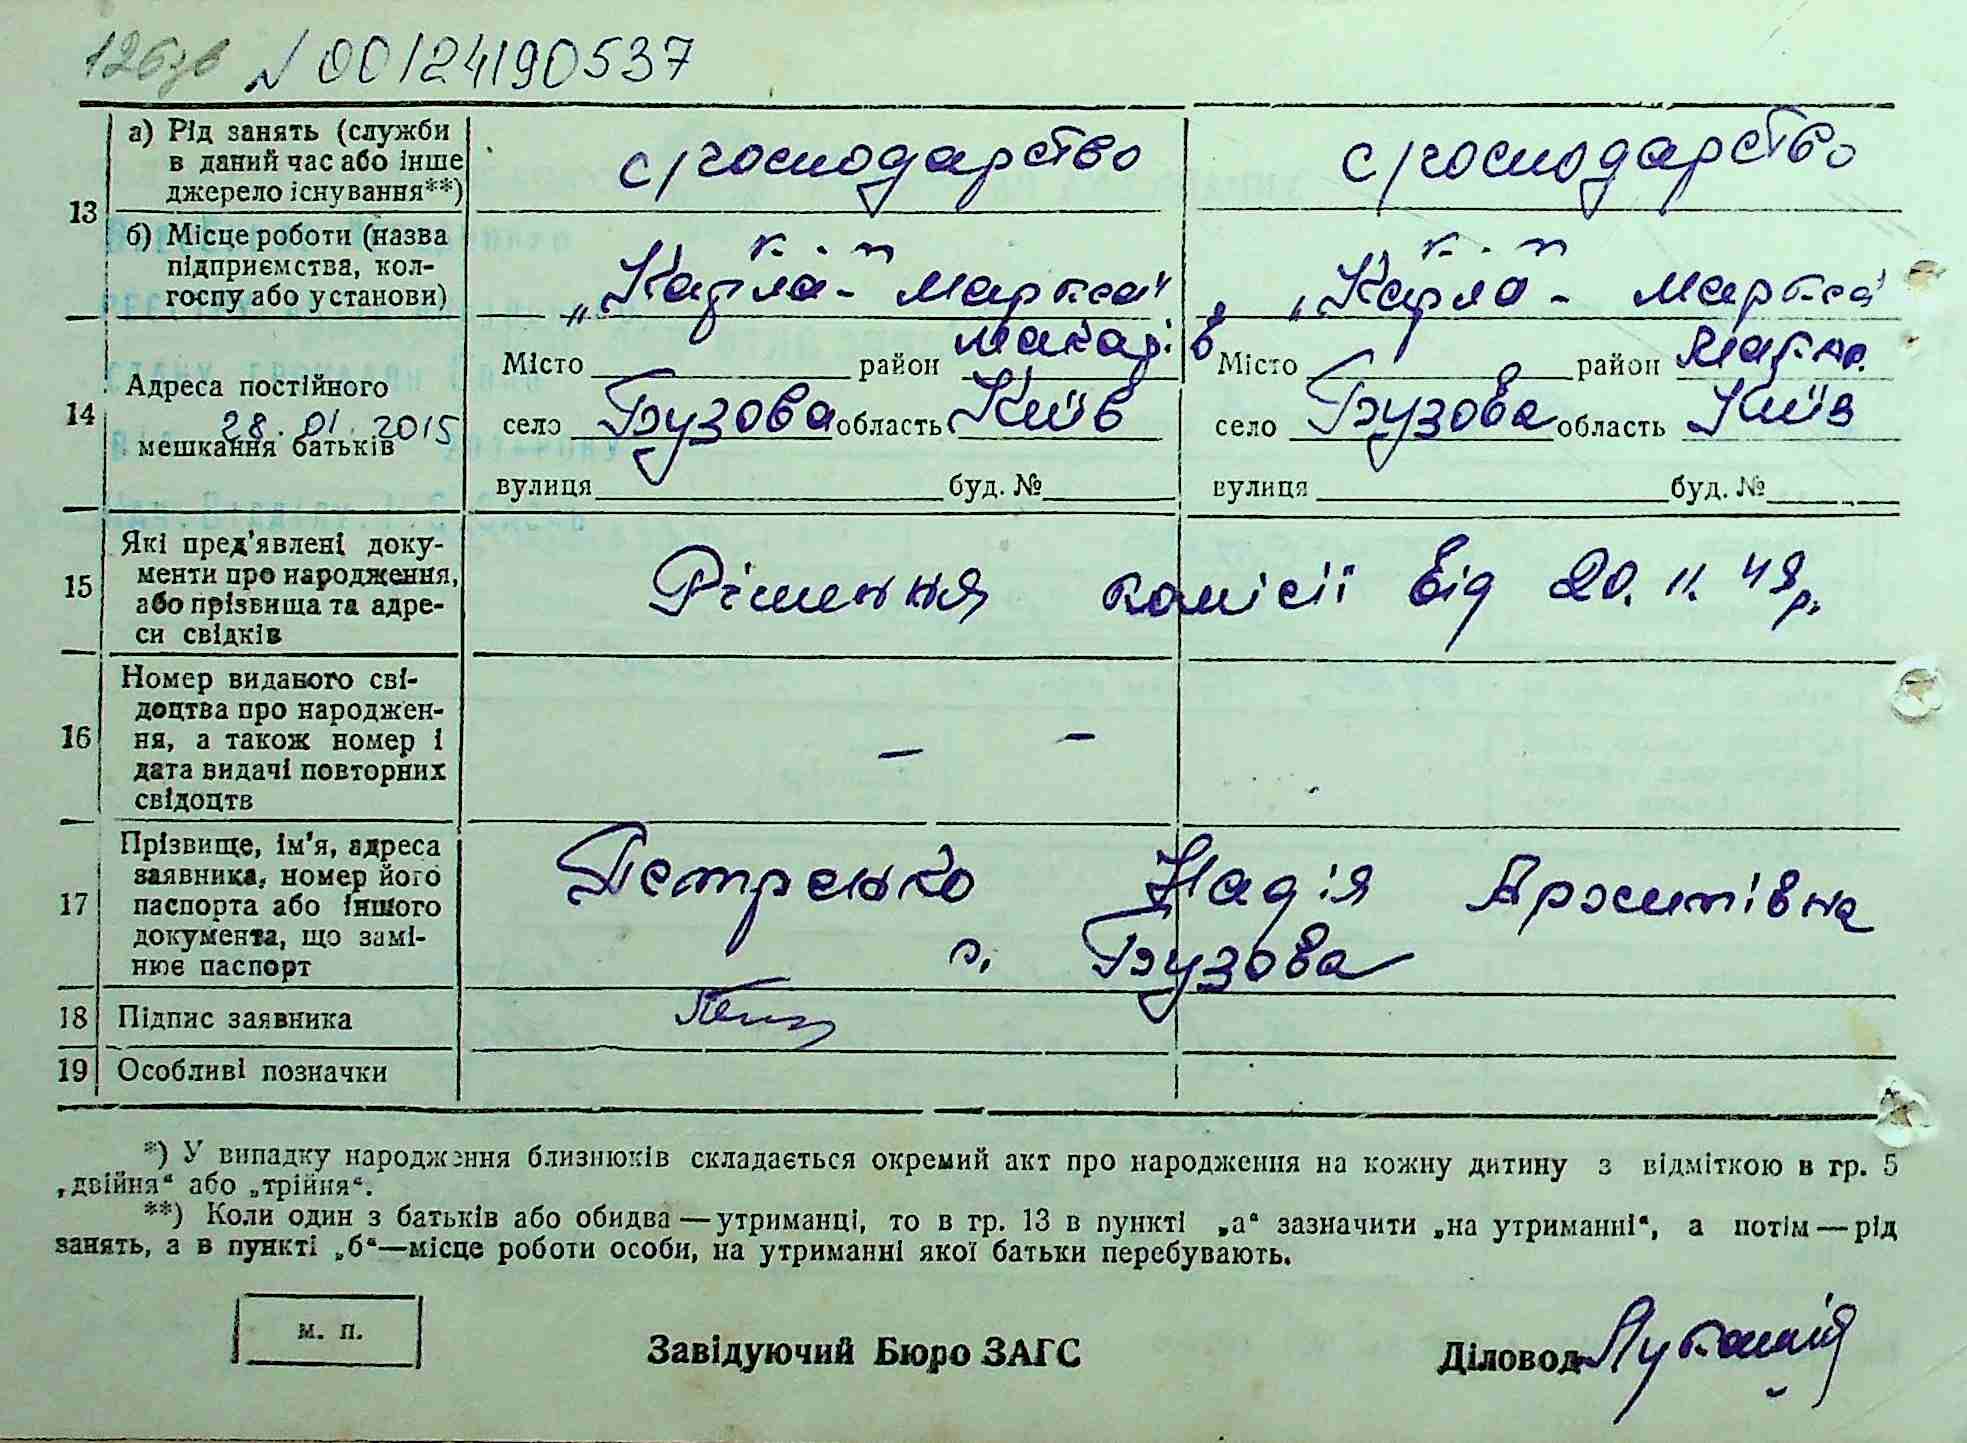 126зв N 00124190537
13
а) Рід занять (служби в даний час або інше джерело існування**)
с/господарство
с/господарство
б) Місце роботи (назва підприємства, колгоспу або установи)
к-п
„Карла-Маркса"
к-п
„Карла-Маркса"
14
Адреса постійного
28.01.2015
мешкання батьків
Місто район Макарів
село Бузова область Київ
вулиця буд. №
Місто район Мака.
село Бузова область Київ
вулиця буд. №
15
Які пред'явлені доку-
менти про народження,
або прізвища та адре-
си свідків
Рішення комісії від 20. II. 49р.
16
Номер виданого сві-
доцтва про народжен-
ня, а також номер і
дата видачі повторних
свідоцтв
– –
17
Прізвище, ім'я, адреса
заявника, номер його
паспорта або іншого
документа, що замі-
нює паспорт
Петренко Надія Архипівна
с. Бузова
18 Підпис заявника
19 Особливі позначки
*) У випадку народження близнюків складається окремий акт про народження на кожну дитину з відміткою в гр. 5
„двійня" або „трійня".
**) Коли один з батьків або обидва—утриманці, то в гр. 13 в пункті „а" зазначити „на утриманні", а потім—рід
занять, а в пункті „б"—місце роботи особи, на утриманні якої батьки перебувають.
м. п.
Завідуючий Бюро ЗАГС
Діловод